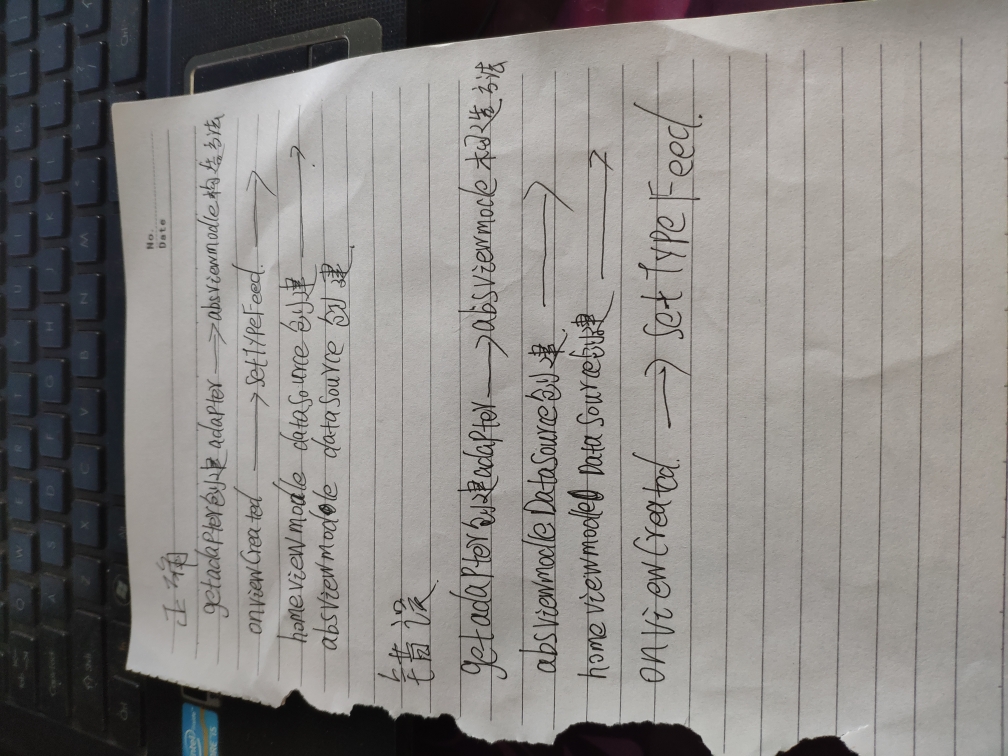 No.
Date
正确
getadapter创建adapter → absviewmodle构造方法
onviewCreated → setTypeFeed. →
homeviewmodle datasource创建 →
absviewmodle datasource创建.
错误
getadapter创建adapter → absviewmodle构造方法
absviewmodle DataSource创建. →
homeviewmodel DataSource创建 →
onViewCreated. → set TYPE Feed.